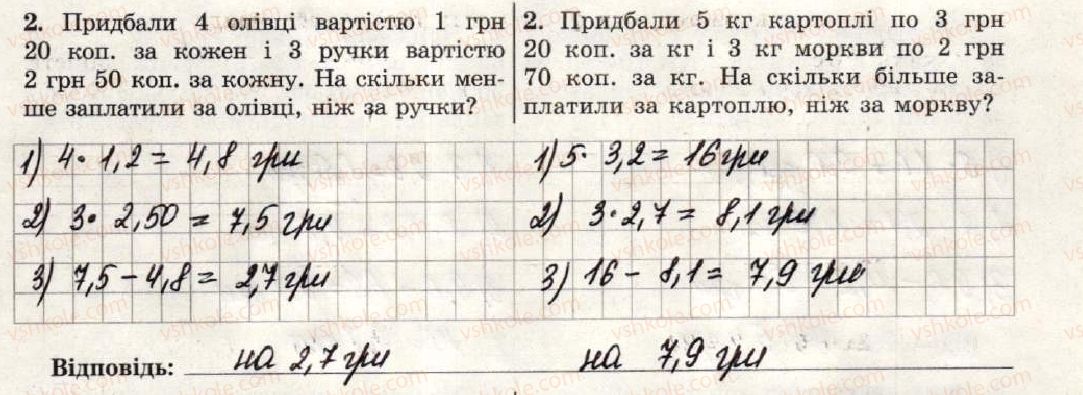 2. Придбали 4 олівці вартістю 1 грн
20 коп. за кожен і 3 ручки вартістю
2 грн 50 коп. за кожну. На скільки мен-
ше заплатили за олівці, ніж за ручки?
1) 4 · 1,2 = 4,8 грн
2) 3 · 2,50 = 7,5 грн
3) 7,5 – 4,8 = 2,7 грн
2. Придбали 5 кг картоплі по 3 грн
20 коп. за кг і 3 кг моркви по 2 грн
70 коп. за кг. На скільки більше за-
платили за картоплю, ніж за моркву?
1) 5 · 3,2 = 16 грн
2) 3 · 2,7 = 8,1 грн
3) 16 – 8,1 = 7,9 грн
Відповідь: на 2,7 грн на 7,9 грн
vshkole.com